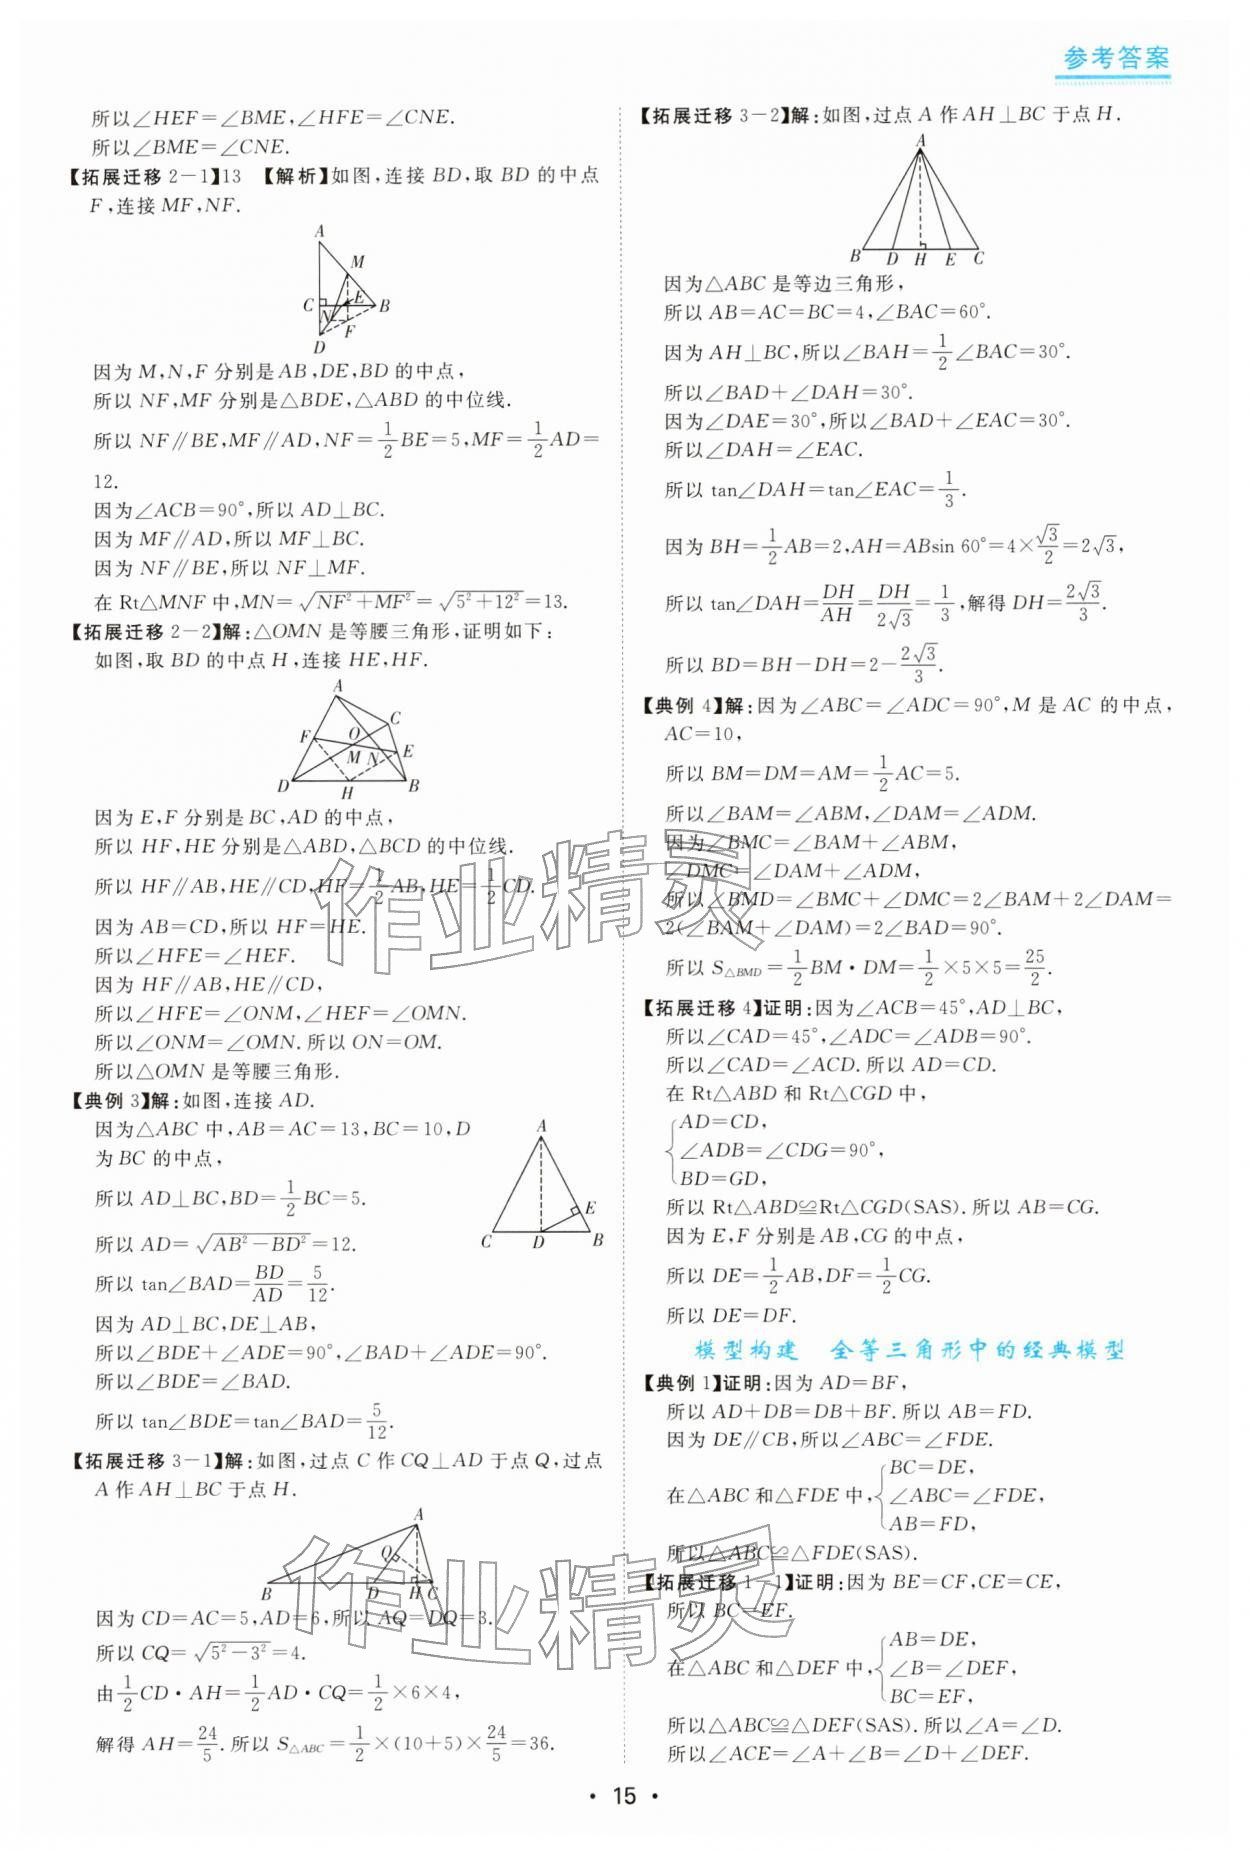 参考答案
所以∠HEF=∠BME,∠HFE=∠CNE.
所以∠BME=∠CNE.
【拓展迁移 2-1】13 【解析】如图,连接 BD,取 BD 的中点
F,连接 MF,NF.
A
M
C E B
N F
D
因为 M,N,F 分别是 AB,DE,BD 的中点,
所以 NF,MF 分别是△BDE,△ABD 的中位线.
所以 NF∥BE,MF∥AD,NF=1/2 BE=5,MF=1/2 AD=
12.
因为∠ACB=90°,所以 AD⊥BC.
因为 MF∥AD,所以 MF⊥BC.
因为 NF∥BE,所以 NF⊥MF.
在 Rt△MNF 中,MN=√(NF²+MF²)=√(5²+12²)=13.
【拓展迁移 2-2】解:△OMN 是等腰三角形,证明如下:
如图,取 BD 的中点 H,连接 HE,HF.
A
C
F O
M N E
D H B
因为 E,F 分别是 BC,AD 的中点,
所以 HF,HE 分别是△ABD,△BCD 的中位线.
所以 HF∥AB,HE∥CD,HF=1/2 AB,HE=1/2 CD.
因为 AB=CD,所以 HF=HE.
所以∠HFE=∠HEF.
因为 HF∥AB,HE∥CD,
所以∠HFE=∠ONM,∠HEF=∠OMN.
所以∠ONM=∠OMN.所以 ON=OM.
所以△OMN 是等腰三角形.
【典例 3】解:如图,连接 AD.
因为△ABC 中,AB=AC=13,BC=10,D
为 BC 的中点,
所以 AD⊥BC,BD=1/2 BC=5.
所以 AD=√(AB²-BD²)=12.
所以 tan∠BAD=BD/AD=5/12.
A
E
C D B
因为 AD⊥BC,DE⊥AB,
所以∠BDE+∠ADE=90°,∠BAD+∠ADE=90°.
所以∠BDE=∠BAD.
所以 tan∠BDE=tan∠BAD=5/12.
【拓展迁移 3-1】解:如图,过点 C 作 CQ⊥AD 于点 Q,过点
A 作 AH⊥BC 于点 H.
A
Q
B D H C
因为 CD=AC=5,AD=6,所以 AQ=DQ=3.
所以 CQ=√(5²-3²)=4.
由 1/2 CD·AH=1/2 AD·CQ=1/2×6×4,
解得 AH=24/5.所以 S△ABC=1/2×(10+5)×24/5=36.
【拓展迁移 3-2】解:如图,过点 A 作 AH⊥BC 于点 H.
A
B D H E C
因为△ABC 是等边三角形,
所以 AB=AC=BC=4,∠BAC=60°.
因为 AH⊥BC,所以∠BAH=1/2∠BAC=30°.
所以∠BAD+∠DAH=30°.
因为∠DAE=30°,所以∠BAD+∠EAC=30°.
所以∠DAH=∠EAC.
所以 tan∠DAH=tan∠EAC=1/3.
因为 BH=1/2 AB=2,AH=ABsin 60°=4×√3/2=2√3,
所以 tan∠DAH=DH/AH=DH/2√3=1/3,解得 DH=2√3/3.
所以 BD=BH-DH=2-2√3/3.
【典例 4】解:因为∠ABC=∠ADC=90°,M 是 AC 的中点,
AC=10,
所以 BM=DM=AM=1/2 AC=5.
所以∠BAM=∠ABM,∠DAM=∠ADM.
因为∠BMC=∠BAM+∠ABM,
∠DMC=∠DAM+∠ADM,
所以∠BMD=∠BMC+∠DMC=2∠BAM+2∠DAM=
2(∠BAM+∠DAM)=2∠BAD=90°.
所以 S△BMD=1/2 BM·DM=1/2×5×5=25/2.
【拓展迁移 4】证明:因为∠ACB=45°,AD⊥BC,
所以∠CAD=45°,∠ADC=∠ADB=90°.
所以∠CAD=∠ACD.所以 AD=CD.
在 Rt△ABD 和 Rt△CGD 中,
AD=CD,
∠ADB=∠CDG=90°,
BD=GD,
所以 Rt△ABD≌Rt△CGD(SAS).所以 AB=CG.
因为 E,F 分别是 AB,CG 的中点,
所以 DE=1/2 AB,DF=1/2 CG.
所以 DE=DF.
模型构建 全等三角形中的经典模型
【典例 1】证明:因为 AD=BF,
所以 AD+DB=DB+BF.所以 AB=FD.
因为 DE∥CB,所以∠ABC=∠FDE.
BC=DE,
在△ABC 和△FDE 中,∠ABC=∠FDE,
AB=FD,
所以△ABC≌△FDE(SAS).
【拓展迁移 1-1】证明:因为 BE=CF,CE=CE,
所以 BC=EF.
AB=DE,
在△ABC 和△DEF 中,∠B=∠DEF,
BC=EF,
所以△ABC≌△DEF(SAS).所以∠A=∠D.
所以∠ACE=∠A+∠B=∠D+∠DEF.
作业精灵
作业精灵
· 15 ·